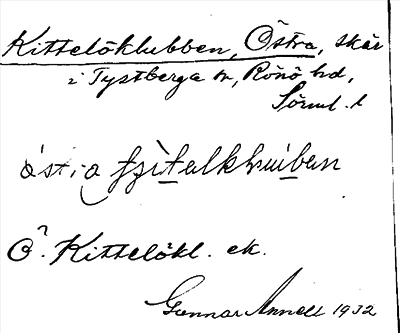 Kittelöklubben, Östra, skär
i Tystberga sn, Rönö hd,
Sörml. l
östra
Ö. Kittelökl. ek.
Gunnar Annell 1932